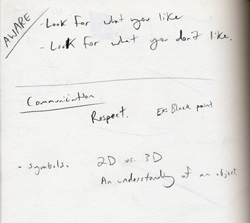 AWARE
- Look For what you like
- Look For what you don't like.
Communication
Respect.
Ex: Black paint
- symbols. 2D vs. 3D
An understanding of an object.